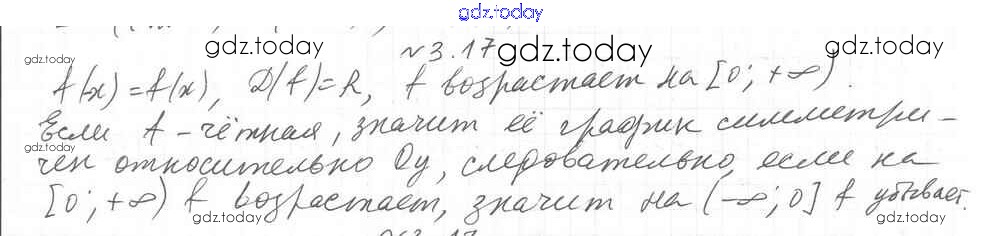 gdz.today
№3.17 gdz.today
gdz.today gdz.today
f(-x)=f(x), D(f)=R, f возрастает на [0;+∞).
gdz.today
Если f - чётная, значит её график симметри-
gdz.today
чен относительно Oy, следовательно, если на
[0;+∞) f возрастает, значит на (-∞;0] f убывает.
gdz.today gdz.today gdz.today